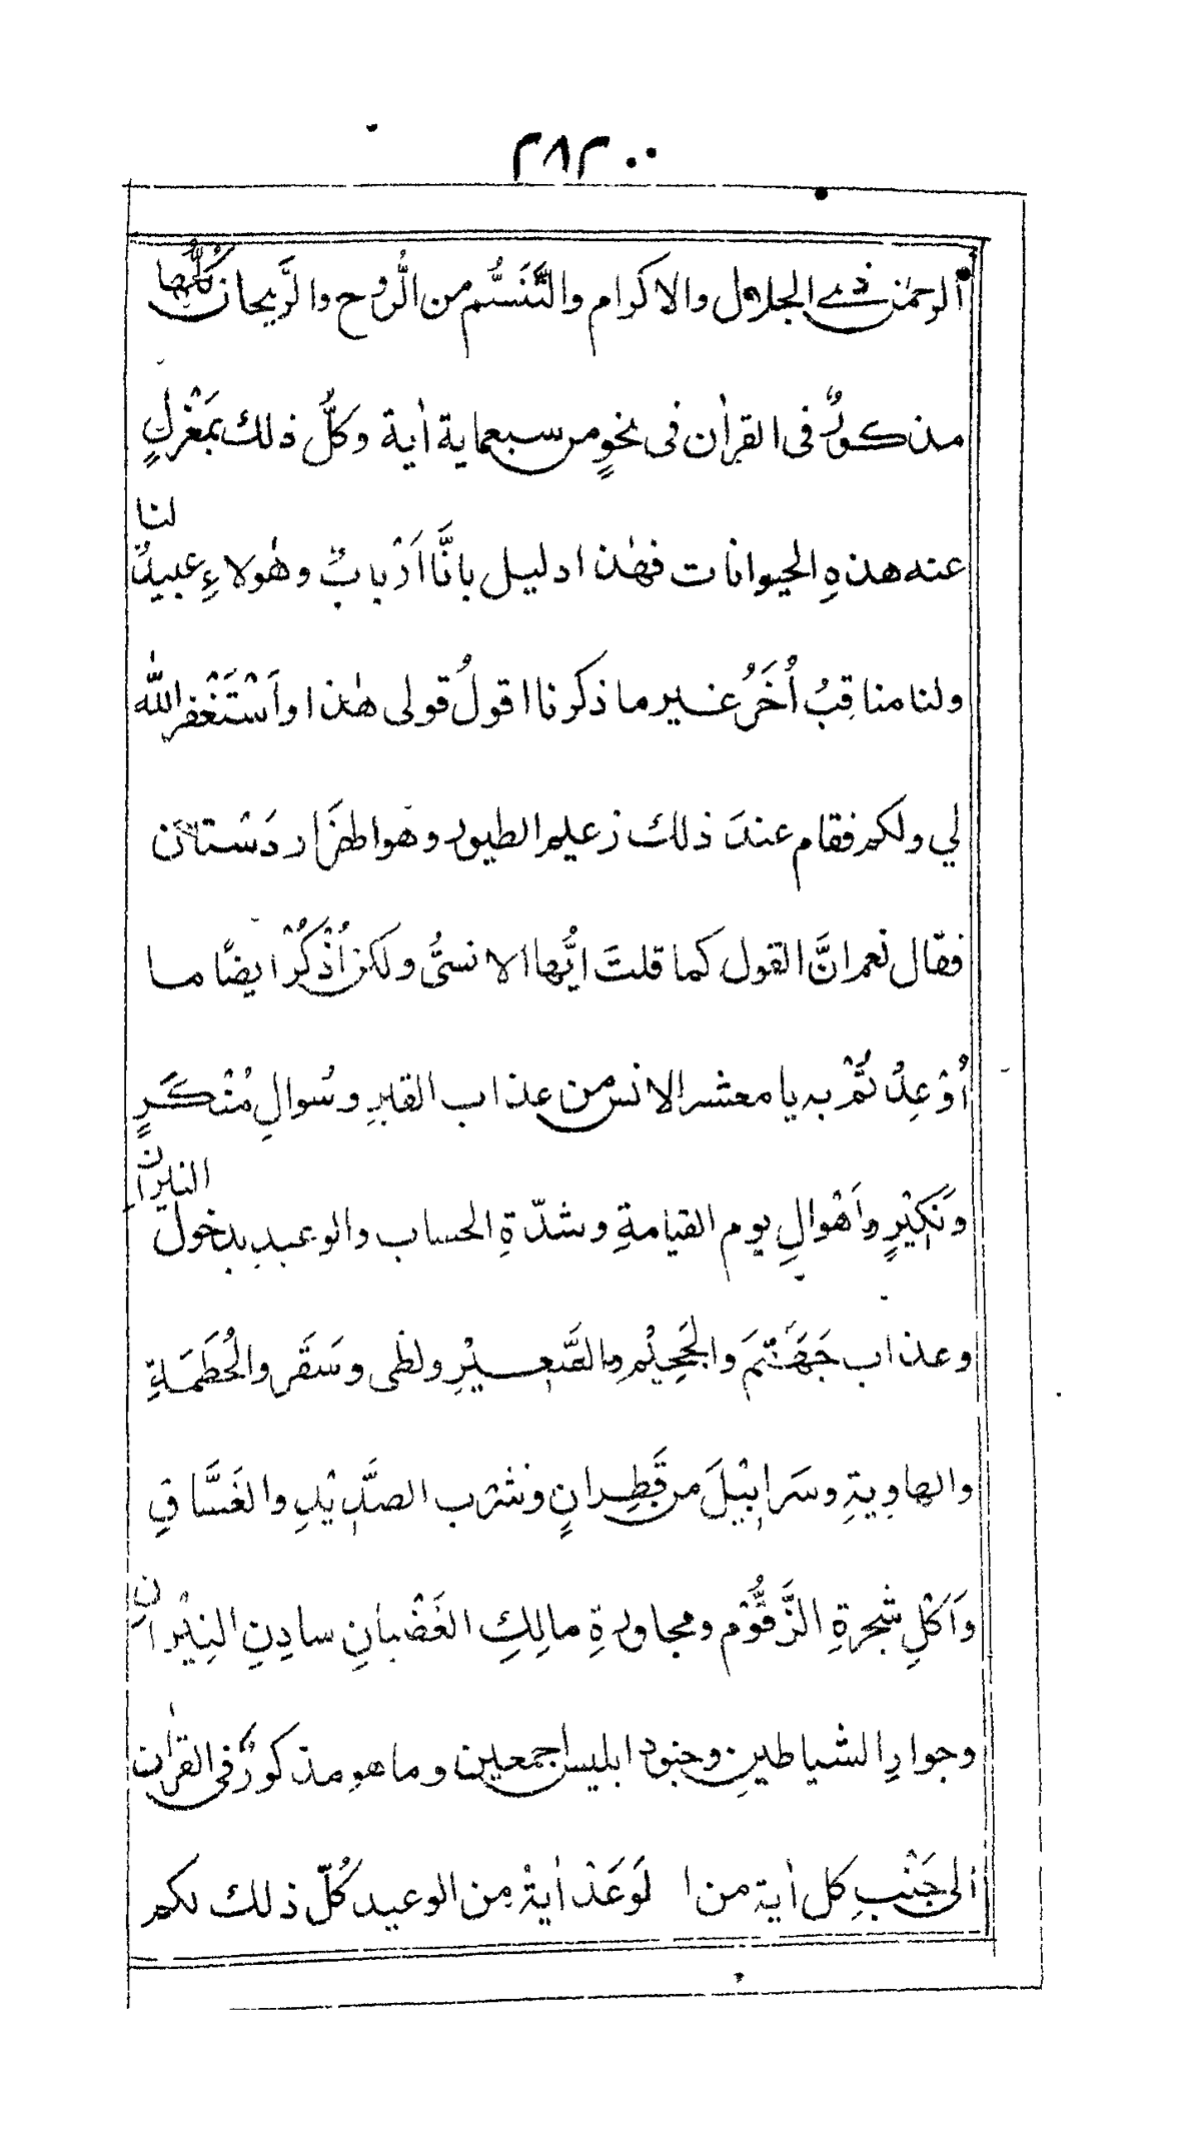 ٢٨٢
الرحمٰن ذے الجلال والاكرام والتَّنَسُّم من الرُّوح والرَّيحان كلّها
مذكورٌ فى القراٰن فى نحوٍ من سبعماية اٰية وكلُّ ذلك بمَعْزلٍ
عنه هذهِ الحيوانات فهٰذا دليل بانَّا اَرْبابٌ وهٰولاءِ عبيدٌ لنا
ولنا مناقِبُ اُخَرُ غير ما ذكرنا اقولُ قولى هٰذا واَسْتَغْفر اللّٰه
لي ولكم فقام عندَ ذلك زعيم الطيور وهو الهَزَار دَسْتان
فقال نعم انَّ القول كما قلتَ ايُّها الانسىُّ ولكن اُذْكُرْ ايضًا ما
اُوْعِدْتُمْ به يا معشر الانس من عذاب القبرِ وسُوالِ مُنْكَرٍ
ونَكِيْرٍ واَهْوالِ يوم القيامةِ وشدّةِ الحساب والوعيدِ بدخول النيران
وعذاب جَهَنَّمَ والجَحِيْمِ والسَّعِيْرِ ولظٰى وسَقَر والحُطَمَةِ
والهاوِيةِ وسَرابِيْلَ من قَطِرانٍ وشُرْب الصَّدِيْدِ والغَسَّاقِ
وَاَكْلِ شجرةِ الزَّقُّوْم ومجاورةِ مالِكِ الغَضْبانِ سادِنِ النِيْرانِ
وجوارِ الشياطينِ وجنود ابليس اجمعين وما هو مذكورٌ فى القراٰن
الى جَنْبِ كل اٰية من ا لوَعَدْ اٰيةْ مِن الوعيد كُلّ ذلك لكم